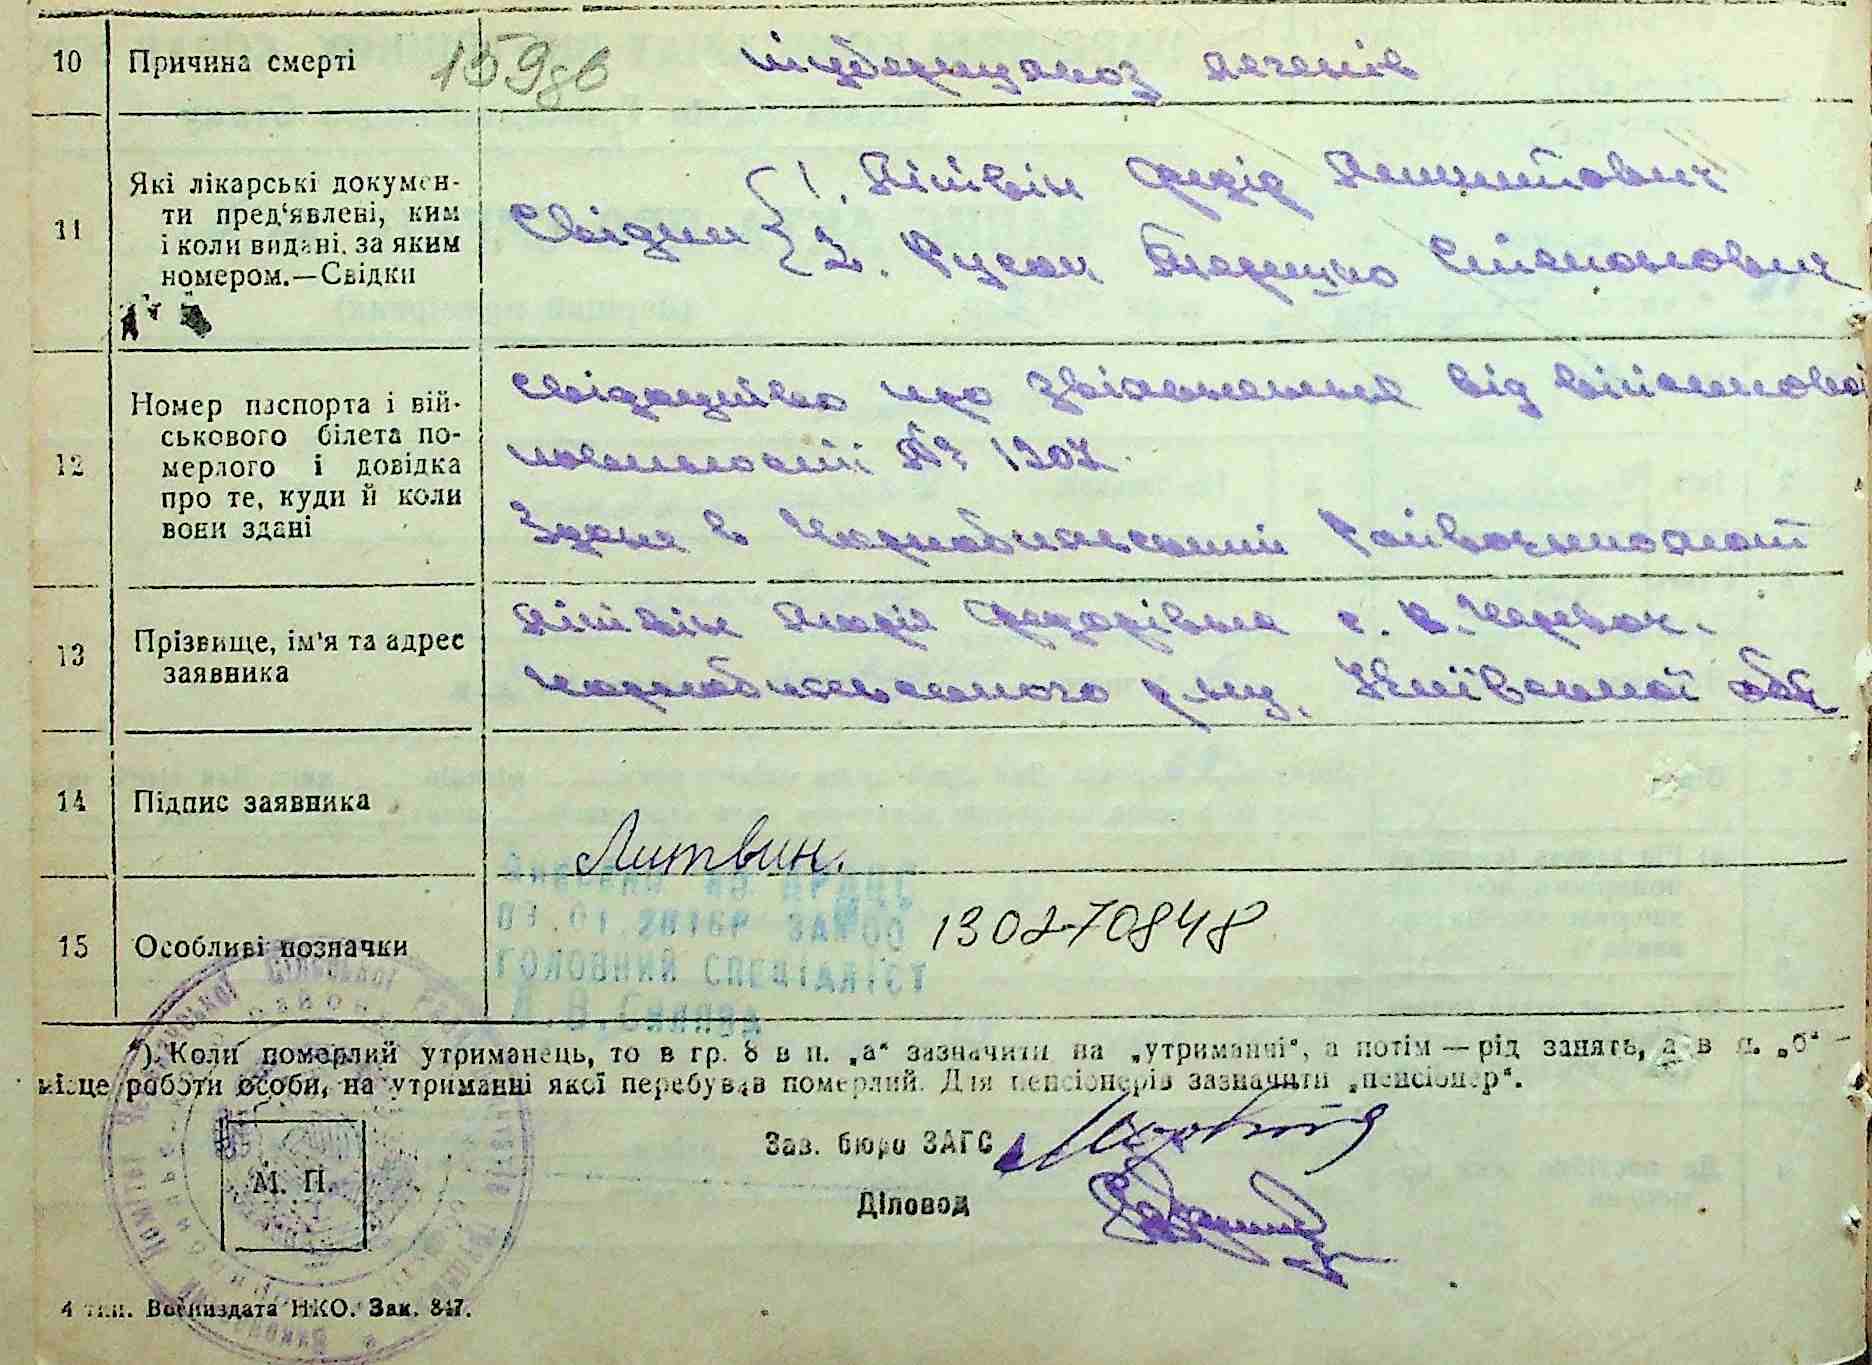 10 Причина смерті 159дв туберкульоз легенів
11 Які лікарські докумен-
ти пред‘явлені, ким
і коли видані, за яким
номером.—Свідки
Свідки { 1. Літвін Федір
2. Русан Степанович
12 Номер паспорта і вій-
ськового білета по-
мерлого і довідка
про те, куди й коли
вони здані
свідоцтво про звільнення від військової
повинності № 1307.
Здане в Чорнобильський Райвоєнкомат
13 Прізвище, ім'я та адрес
заявника
Літвін Марія Федорівна с. В. Черевач.
Чорнобильського р-ну, Київської обл
14 Підпис заявника
Литвин.
Внесено до ДРАЦС
01.2016р
15 Особливі позначки 130270848
ГОЛОВНИЙ СПЕЦІАЛІСТ
*). Коли померлий утриманець, то в гр. 8 в п. „а“ зазначити на „утриманчі“, а потім — рід занять, а в п. „б“ —
місце роботи особи, на утриманні якої перебував померлий. Для пенсіонерів зазначити „пенсіонер“.
Зав. бюро ЗАГС
М. П.
Діловод
4 тип. Воениздата НКО. Зак. 847.